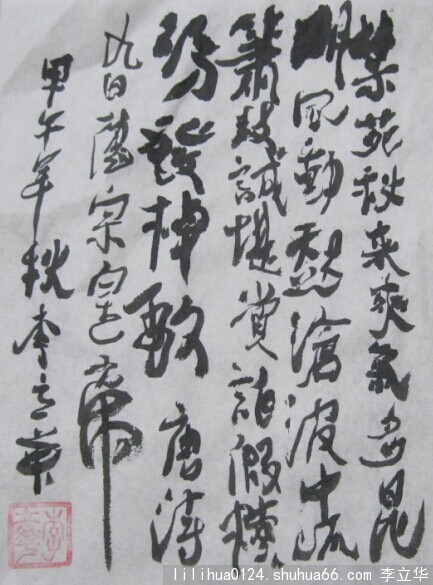 禁苑秋来爽氣多昆
明風動起滄波中流
簫鼓誠堪賞詎假橫
汾發棹歌 唐诗
九日宗皇帝
甲午年秋李立華
lilihua0124.shuhua66.com 李立华